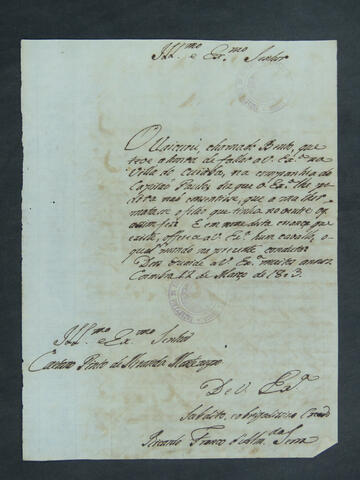 Ill.mo e Ex.mo Senhor
O Uaicurú, chamado Bento, que
teve a honra de fallar a V. Ex.a na
Villa do Cuiabá, na companhia do
Capitão Paulo, diz que V. Ex.a lhe
não consentisse, que a mulher
matasse o filho que tinha no ventre
E em
offerece a V. Ex.a hum cavallo, o
qual mando na presente conducta
Deos Guarde a V. Ex.a muitos annos
Coimbra 12 de Março de 1803.
Ill.mo e Ex.mo Senhor
Caetano Pinto de Miranda Montenegro
De V. Ex.a
Subdito, e obrigadissimo Creado
Ricardo Franco d'Alm.da Serra